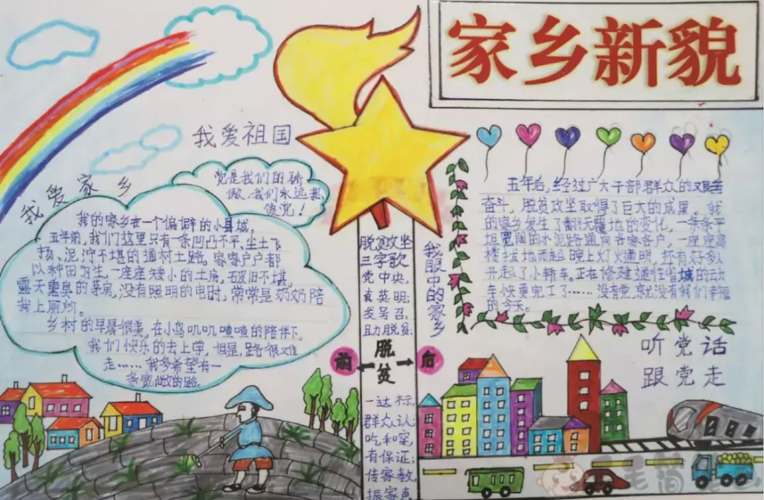 家乡新貌
我爱祖国
我爱家乡
党是我们的骄
傲,我们永远热
爱党!
我的家乡在一个偏僻的小县城,
五年前,我们这里只有一条凹凸不平,尘土飞
扬、泥泞不堪的通村土路,家家户户都
以种田为生,一座座矮小的土房,破旧不堪,
露天恶臭的茅房,没有照明的电时,常常是奶奶陪
我上厕所。
乡村的早晨很美,在小鸟叽叽喳喳的陪伴下,
我们快乐的去上学,但是,路很难
走……我多希望有一
条宽敞的路。
脱贫攻坚
三字歌
党中央,
真英明;
发号召,
助脱贫;
前
脱贫
后
一达标,
群众认;
吃和穿,
有保证;
传家教,
振家声
我眼中的家乡
五年后,经过广大干部群众的艰苦
奋斗,脱贫攻坚取得了巨大的成果,我
的家乡发生了翻天覆地的变化,一条条平
坦宽阔的水泥路通向各家各户,一座座高
楼拔地而起,晚上灯火通明,还有好多人
开起了小轿车,正在修建通往电城的动
车,快要完工了……没有党,就没有我们幸福
的今天。
听党话
跟党走